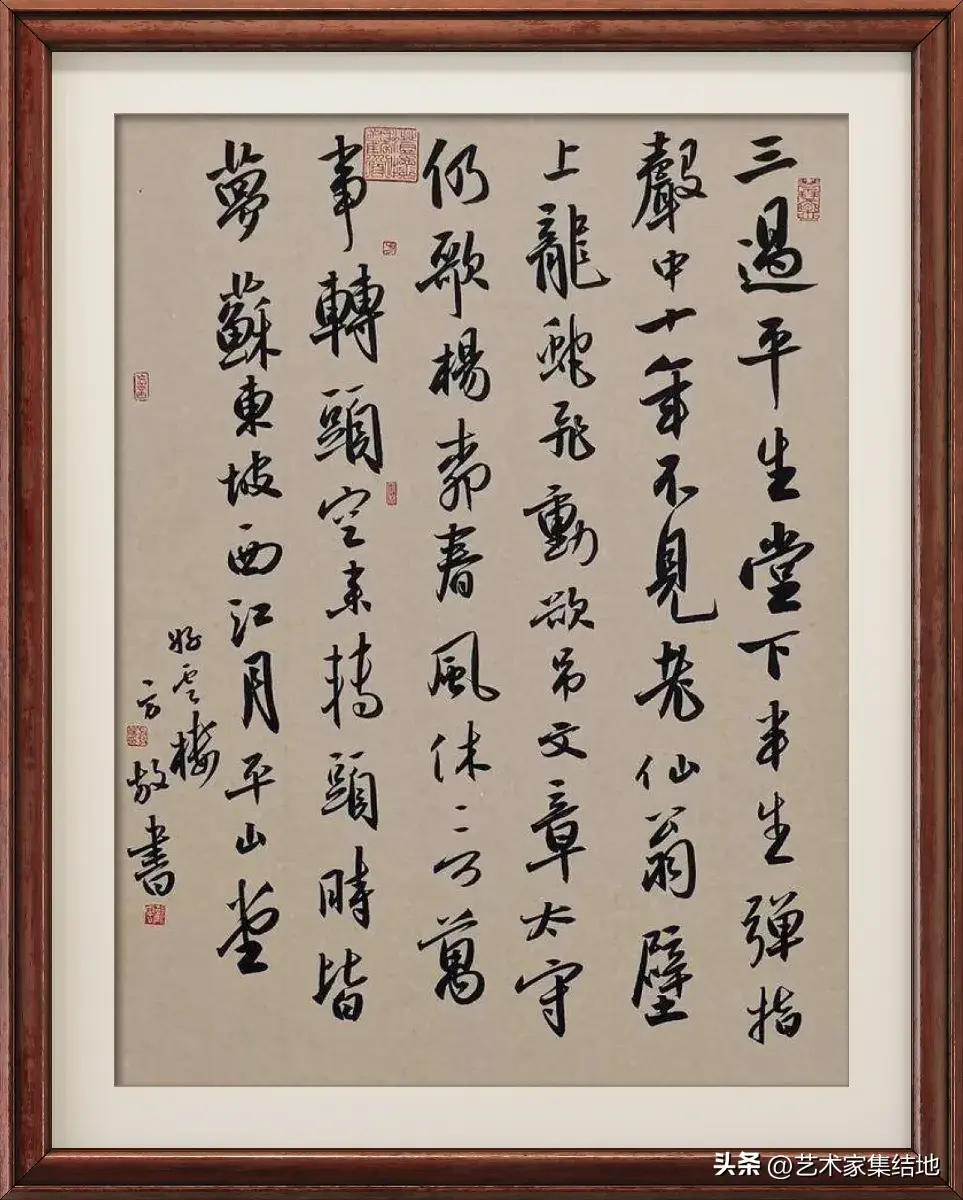 三過平生堂下半生彈指
聲中十年不見老仙翁壁
上龍蛇飛動欲吊文章太守
仍歌楊柳春風休言萬
事轉頭空未轉頭時皆
夢 蘇東坡西江月平山堂
好雲樓
敬書
头条 @艺术家集结地